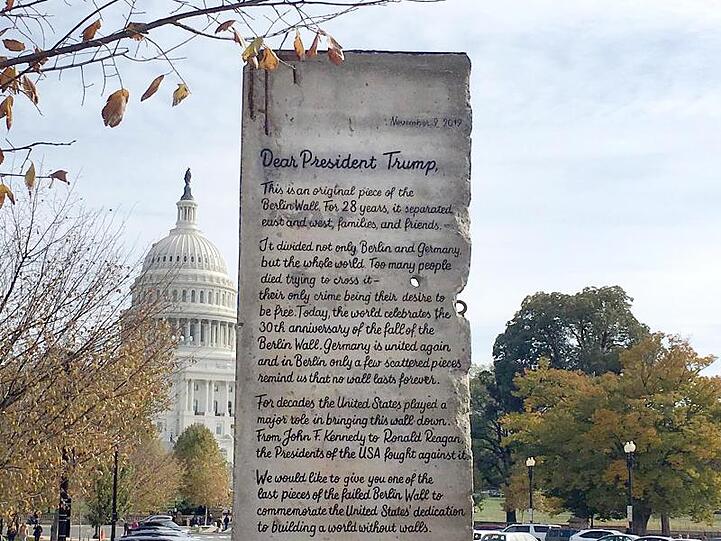 November 9, 2019
Dear President Trump,
This is an original piece of the
Berlin Wall. For 28 years, it separated
east and west, families, and friends.
It divided not only Berlin and Germany
but the whole world. Too many people
died trying to cross it –
their only crime being their desire to
be free. Today, the world celebrates the
30th anniversary of the fall of the
Berlin Wall. Germany is united again
and in Berlin only a few scattered pieces
remind us that no wall lasts forever.
For decades the United States played a
major role in bringing this wall down.
From John F. Kennedy to Ronald Reagan,
the Presidents of the USA fought against it.
We would like to give you one of the
last pieces of the failed Berlin Wall to
commemorate the United States' dedication
to building a world without walls.